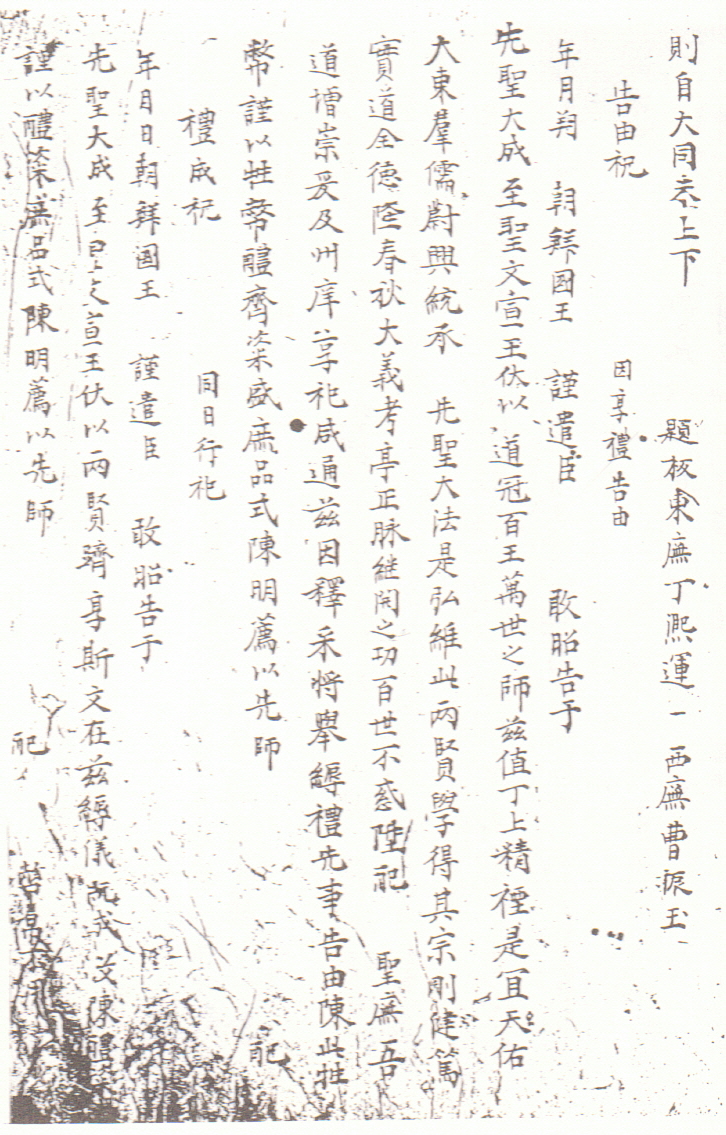 則自大同忝上下 題板東廡丁熙運一西廡曹振玉
告由祝 因享禮告由
年月朔 朝鮮國王 謹遣臣 敢昭告于
先聖大成至聖文宣王伏以道冠百王萬世之師玆值丁上精禋是宜天佑
大東羣儒蔚興統承 先聖大法是弘維此兩賢學得其宗剛健篤
實道全德隆春秋大義考亭正脉継開之功百世不惑陞配 聖廡吾
道增崇爰及州庠享祀咸通玆因釋采將舉縟禮先事告由陳此牲
幣謹以牲幣醴齊粢盛庶品式陳明薦以先師 配
禮成祝 同日行祀
年月日朝鮮國王 謹遣臣 敢昭告于
先聖大成至聖文宣王伏以兩賢躋享斯文在玆縟儀旣成 陳醴
謹以醴粢庶品式陳明薦以先師 配